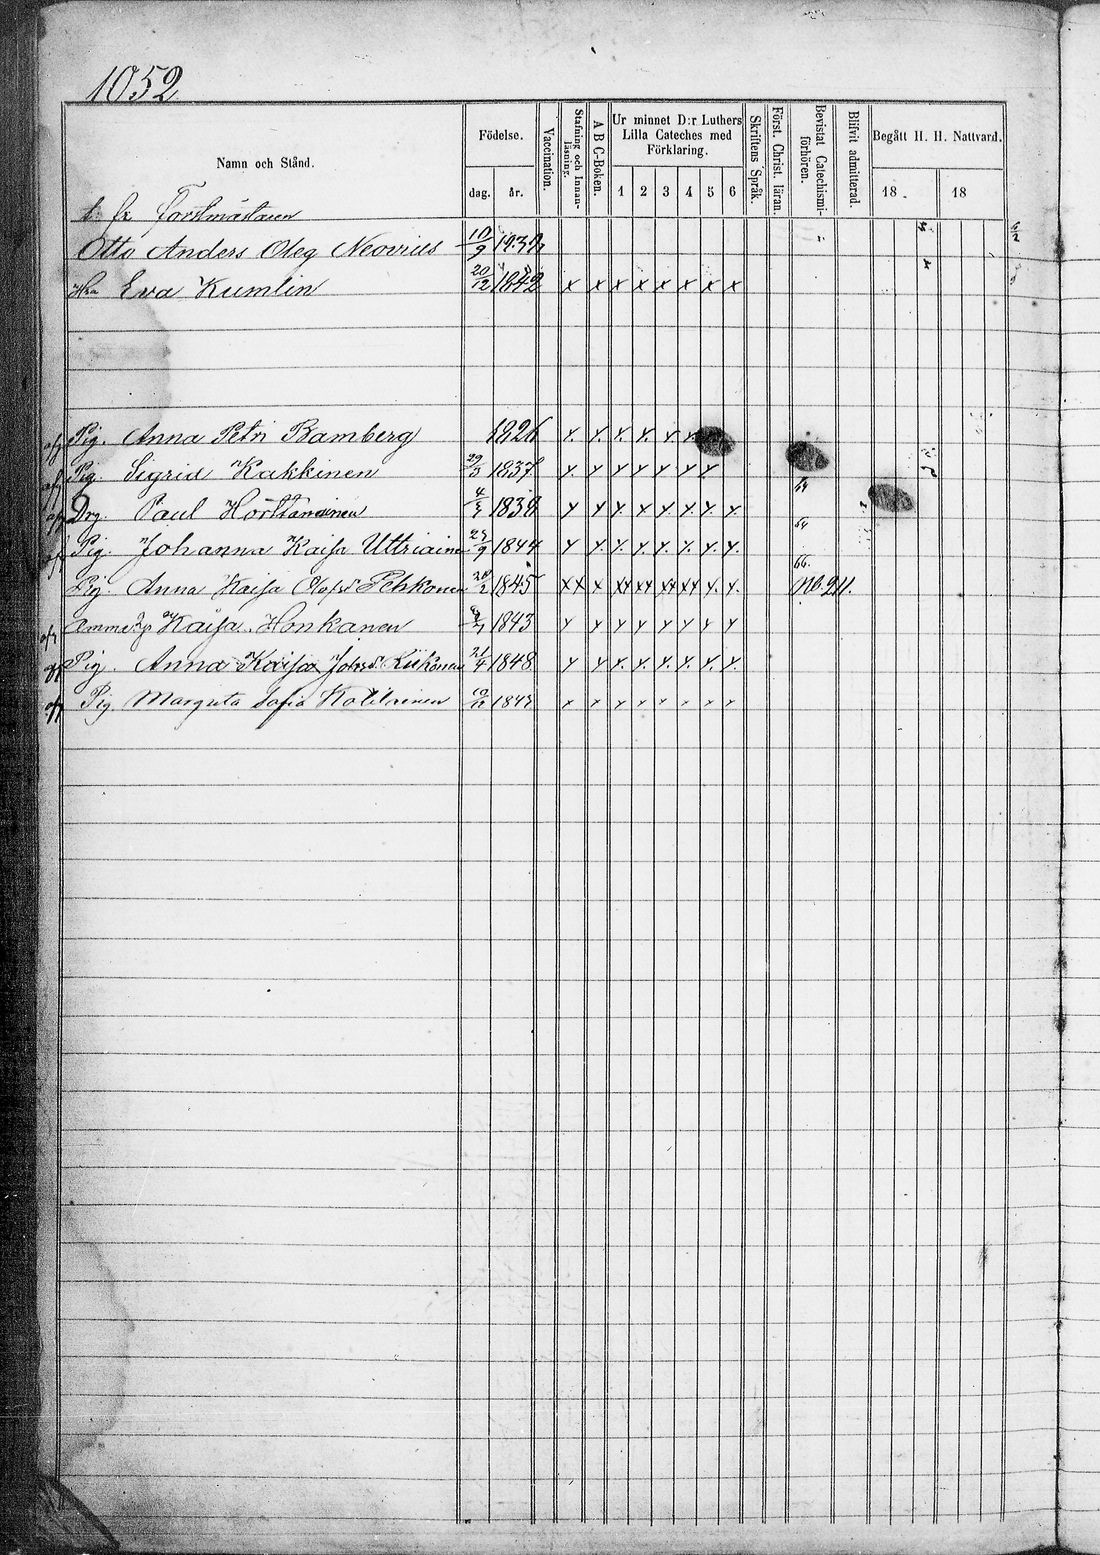 1052
Namn och Stånd.
Födelse.
dag.
år.
Vaccination.
Stafning och Innanläsning.
A B C-Boken.
Ur minnet D:r Luthers Lilla Cateches med Förklaring.
1 2 3 4 5 6
Skriftens Språk.
Först. Christ. läran.
Bevistat Catechismiförhören.
Blifvit admitterad.
Begått H. H. Nattvard.
18 . 18
t. f. Forstmästaren
Otto Anders Oleg Neovius 10/9 1837
Hu Eva Kumlin 20/12 1842 x x x x x x x x
Pig. Anna Petri Bamberg 1826 x x x x x x
Pig. Sigrid Kakkinen 29/3 1837 x x x x x x x
Drg. Paul 4/3 1838 x x x x x x x x 64
Pig. Johanna Kaisa Uttriain 1844 x x x x x x x x 64
Pig. Anna Kaisa Olofsd. Pehkonen 1845 xx x xx xx xx xx x x 66. No 211.
Kaisa Honkanen 1843 x x x x x x x x
Pig. Anna Kaisa Johsd. 21/4 1848 x x x x x x x x
Pig. Margreta Sofia x x x x x x x x